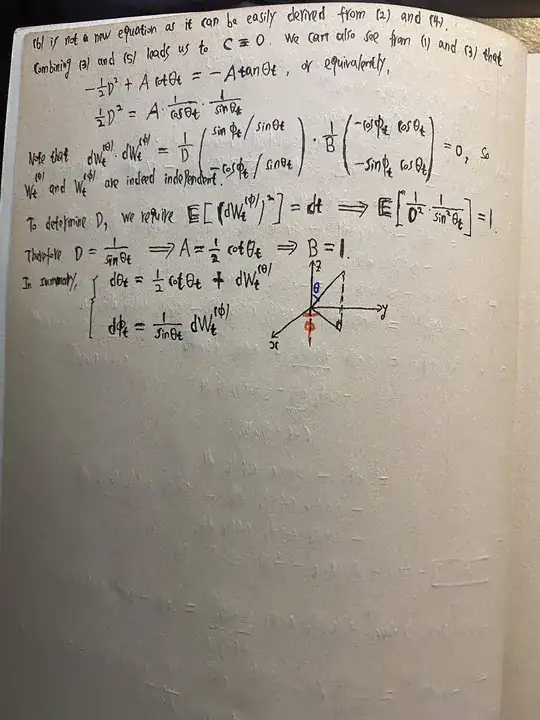 (6) is not a new equation as it can be easily derived from (2) and (4).
Combining (3) and (5) leads us to C ≡ 0. We can also see from (1) and (3) that
-½D² + A cotθt = -A tanθt, or equivalently,
½D² = A · 1/cosθt · 1/sinθt
Note that dWt^(θ) · dWt^(ϕ) = 1/D (sinϕt/sinθt, -cosϕt/sinθt) · 1/B (-cosϕt cosθt, -sinϕt cosθt) = 0, so
Wt^(θ) and Wt^(ϕ) are indeed independent.
To determine D, we require E[(dWt^(ϕ))²] = dt ⟹ E[1/D² · 1/sin²θt] = 1.
Therefore D = 1/sinθt ⟹ A = ½ cotθt ⟹ B = 1.
In summary, { dθt = ½ cotθt + dWt^(θ)
dϕt = 1/sinθt dWt^(ϕ)
z
θ
y
x
ϕ